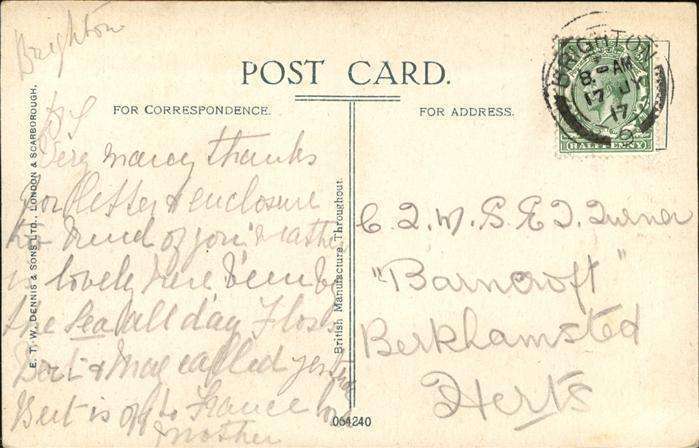 Brighton
POST CARD.
FOR CORRESPONDENCE.
FOR ADDRESS.
BRIGHTON
8. AM
17
17
6
HALFPENNY
E. T. W. DENNIS & SONS LTD., LONDON & SCARBOROUGH.
British Manufacture Throughout.
Very many thanks
for letter & enclosure
kind of you
is lovely here been by
the Sea all day Floss
Bert & May called
Bert is off to France
Mother
C.Q.M.S E.J. Turner
"Barncroft"
Berkhamsted
Herts
064240